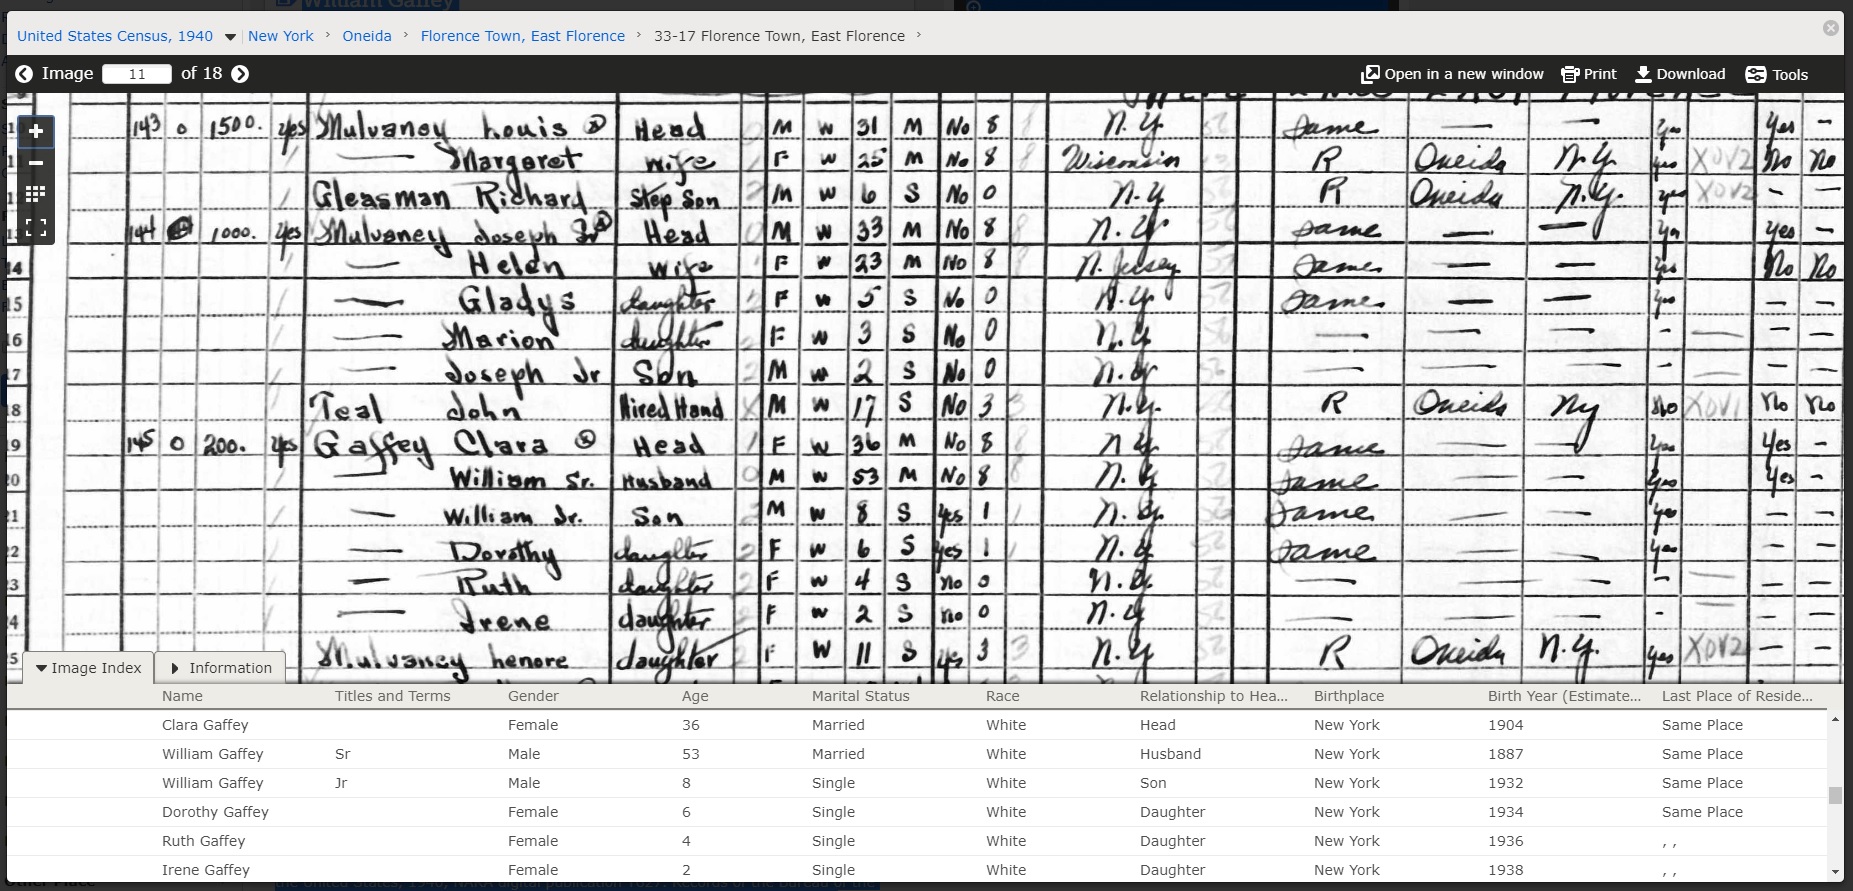 William Gaffey
United States Census, 1940 New York › Oneida › Florence Town, East Florence › 33-17 Florence Town, East Florence ›
Image 11 of 18 Open in a new window Print Download Tools
143 0 1500. yes Mulvaney Louis Head 0 M W 31 M No 8 N.Y. 56 Same — — yes Yes —
11 — Margaret wife 1 F W 25 M No 8 8 Wisconsin R Oneida N.Y. yes X0V2 No No
Gleasman Richard Step Son 2 M W 6 S No 0 N.Y R Oneida N.Y. yes X0V2 — —
144 1000. yes Mulvaney Joseph Sr Head 0 M W 33 M No 8 8 N.Y 56 Same — — yes Yes —
14 — Helen wife 1 F W 23 M No 8 8 N. Jersey Same yes No No
15 — Gladys daughter 2 F W 5 S No 0 N.Y 56 Same — — yes — —
16 — Marion daughter 2 F W 3 S No 0 N.Y 56 — — — - — — —
17 Joseph Jr Son 2 M W 2 S No 0 N.Y 56 — — — - — —
18 Teal John Hired Hand X M W 17 S No 3 3 N.Y. R Oneida NY No X0V1 No No
19 145 0 200. yes Gaffey Clara Head 1 F W 36 M No 8 8 N Y 56 Same — — yes Yes —
20 — William Sr. Husband 0 M W 53 M No 8 8 N.Y Same yes Yes —
21 — William Jr. Son 2 M W 8 S yes 1 1 N.Y. 56 Same — — yes — —
22 — Dorothy daughter 2 F W 6 S yes 1 1 N.Y 56 Same — — yes — —
23 — Ruth daughter 2 F W 4 S no 0 N.Y 56 — — — - — — —
24 — Irene daughter 2 F W 2 S no 0 N.Y 56 — — — - — — —
Mulvaney Lenore daughter 2 F W 11 S yes 3 3 N.Y R Oneida N.Y. yes X0V2 — —
Image Index Information
Name Titles and Terms Gender Age Marital Status Race Relationship to Hea... Birthplace Birth Year (Estimate... Last Place of Reside...
Clara Gaffey Female 36 Married White Head New York 1904 Same Place
William Gaffey Sr Male 53 Married White Husband New York 1887 Same Place
William Gaffey Jr Male 8 Single White Son New York 1932 Same Place
Dorothy Gaffey Female 6 Single White Daughter New York 1934 Same Place
Ruth Gaffey Female 4 Single White Daughter New York 1936 , ,
Irene Gaffey Female 2 Single White Daughter New York 1938 , ,